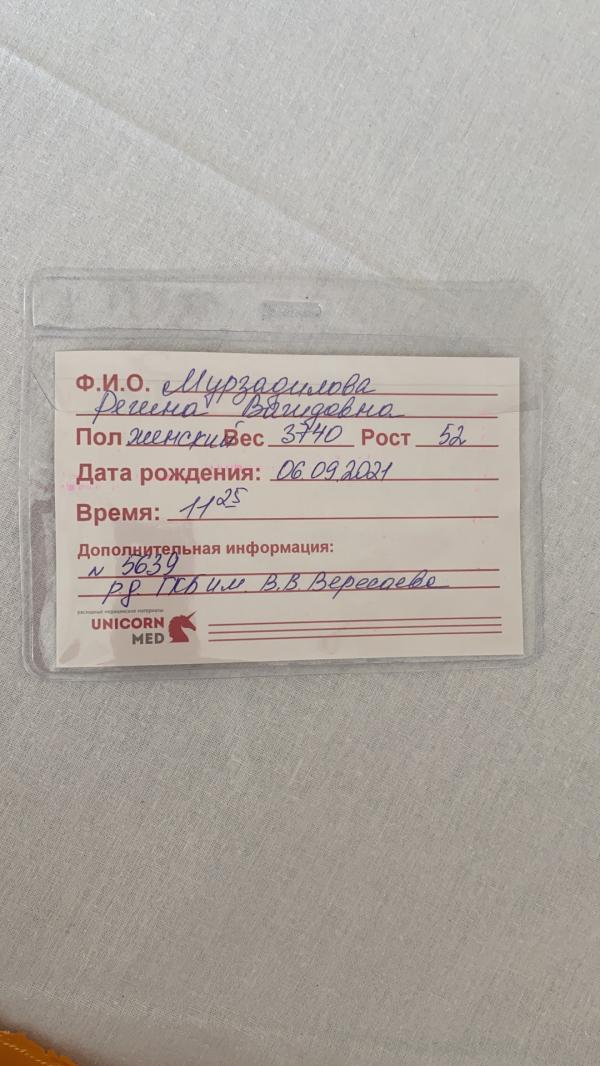 Ф.И.О. Мурзадилова
Регина Вагидовна
Пол женский Вес 3740 Рост 52
Дата рождения: 06.09.2021
Время: 11 25
Дополнительная информация:
N 5639
р.д. ГКБ им. В.В. Вересаева
расходные медицинские материалы
UNICORN
MED